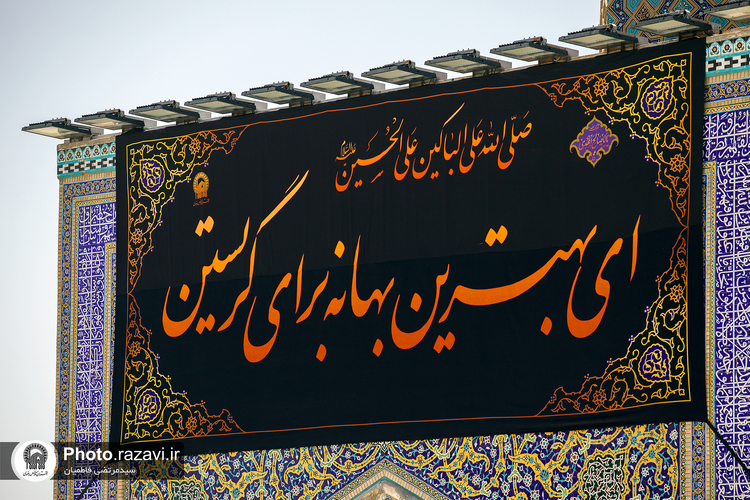 صَلَّی اللهُ عَلَی الباکینَ عَلَی الحُسَین
ای بهترین بهانه برای گریستن
Photo.razavi.ir
سیدمرتضی فاطمیان